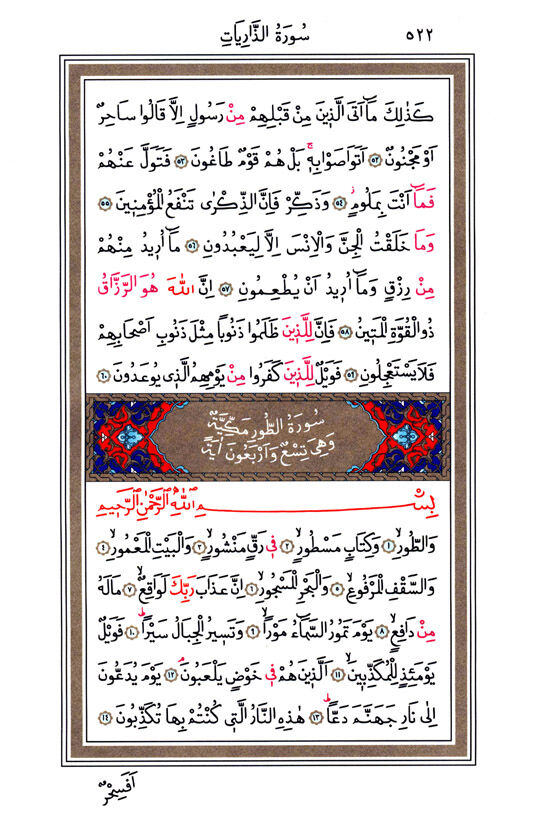 ٥٢٢ سُورَةُ الذَّارِيَاتِ
كَذٰلِكَ مَٓا اَتَى الَّذ۪ينَ مِنْ قَبْلِهِمْ مِنْ رَسُولٍ اِلَّا قَالُوا سَاحِرٌ
اَوْ مَجْنُونٌ ﴿٥٢﴾ اَتَوَاصَوْا بِه۪ۚ بَلْ هُمْ قَوْمٌ طَاغُونَ ﴿٥٣﴾ فَتَوَلَّ عَنْهُمْ
فَمَٓا اَنْتَ بِمَلُومٍۘ ﴿٥٤﴾ وَذَكِّرْ فَاِنَّ الذِّكْرٰى تَنْفَعُ الْمُؤْمِن۪ينَ ﴿٥٥﴾
وَمَا خَلَقْتُ الْجِنَّ وَالْاِنْسَ اِلَّا لِيَعْبُدُونِ ﴿٥٦﴾ مَٓا اُر۪يدُ مِنْهُمْ
مِنْ رِزْقٍ وَمَٓا اُر۪يدُ اَنْ يُطْعِمُونِ ﴿٥٧﴾ اِنَّ اللّٰهَ هُوَ الرَّزَّاقُ
ذُو الْقُوَّةِ الْمَت۪ينُ ﴿٥٨﴾ فَاِنَّ لِلَّذ۪ينَ ظَلَمُوا ذَنُوبًا مِثْلَ ذَنُوبِ اَصْحَابِهِمْ
فَلَا يَسْتَعْجِلُونِ ﴿٥٩﴾ فَوَيْلٌ لِلَّذ۪ينَ كَفَرُوا مِنْ يَوْمِهِمُ الَّذ۪ي يُوعَدُونَ ﴿٦٠﴾
سُورَةُ الطُّورِ مَكِّيَّةٌ
وَهِيَ تِسْعٌ وَاَرْبَعُونَ اٰيَةً
بِسْمِ اللّٰهِ الرَّحْمٰنِ الرَّح۪يمِ
وَالطُّورِۙ ﴿١﴾ وَكِتَابٍ مَسْطُورٍۙ ﴿٢﴾ ف۪ي رَقٍّ مَنْشُورٍۙ ﴿٣﴾ وَالْبَيْتِ الْمَعْمُورِۙ ﴿٤﴾
وَالسَّقْفِ الْمَرْفُوعِۙ ﴿٥﴾ وَالْبَحْرِ الْمَسْجُورِۙ ﴿٦﴾ اِنَّ عَذَابَ رَبِّكَ لَوَاقِعٌۙ ﴿٧﴾ مَا لَهُ
مِنْ دَافِعٍۙ ﴿٨﴾ يَوْمَ تَمُورُ السَّمَٓاءُ مَوْرًاۙ ﴿٩﴾ وَتَس۪يرُ الْجِبَالُ سَيْرًاۜ ﴿١٠﴾ فَوَيْلٌ
يَوْمَئِذٍ لِلْمُكَذِّب۪ينَۙ ﴿١١﴾ اَلَّذ۪ينَ هُمْ ف۪ي خَوْضٍ يَلْعَبُونَۘ ﴿١٢﴾ يَوْمَ يُدَعُّونَ
اِلٰى نَارِ جَهَنَّمَ دَعًّاۜ ﴿١٣﴾ هٰذِهِ النَّارُ الَّت۪ي كُنْتُمْ بِهَا تُكَذِّبُونَ ﴿١٤﴾
اَفَسِحْرٌ